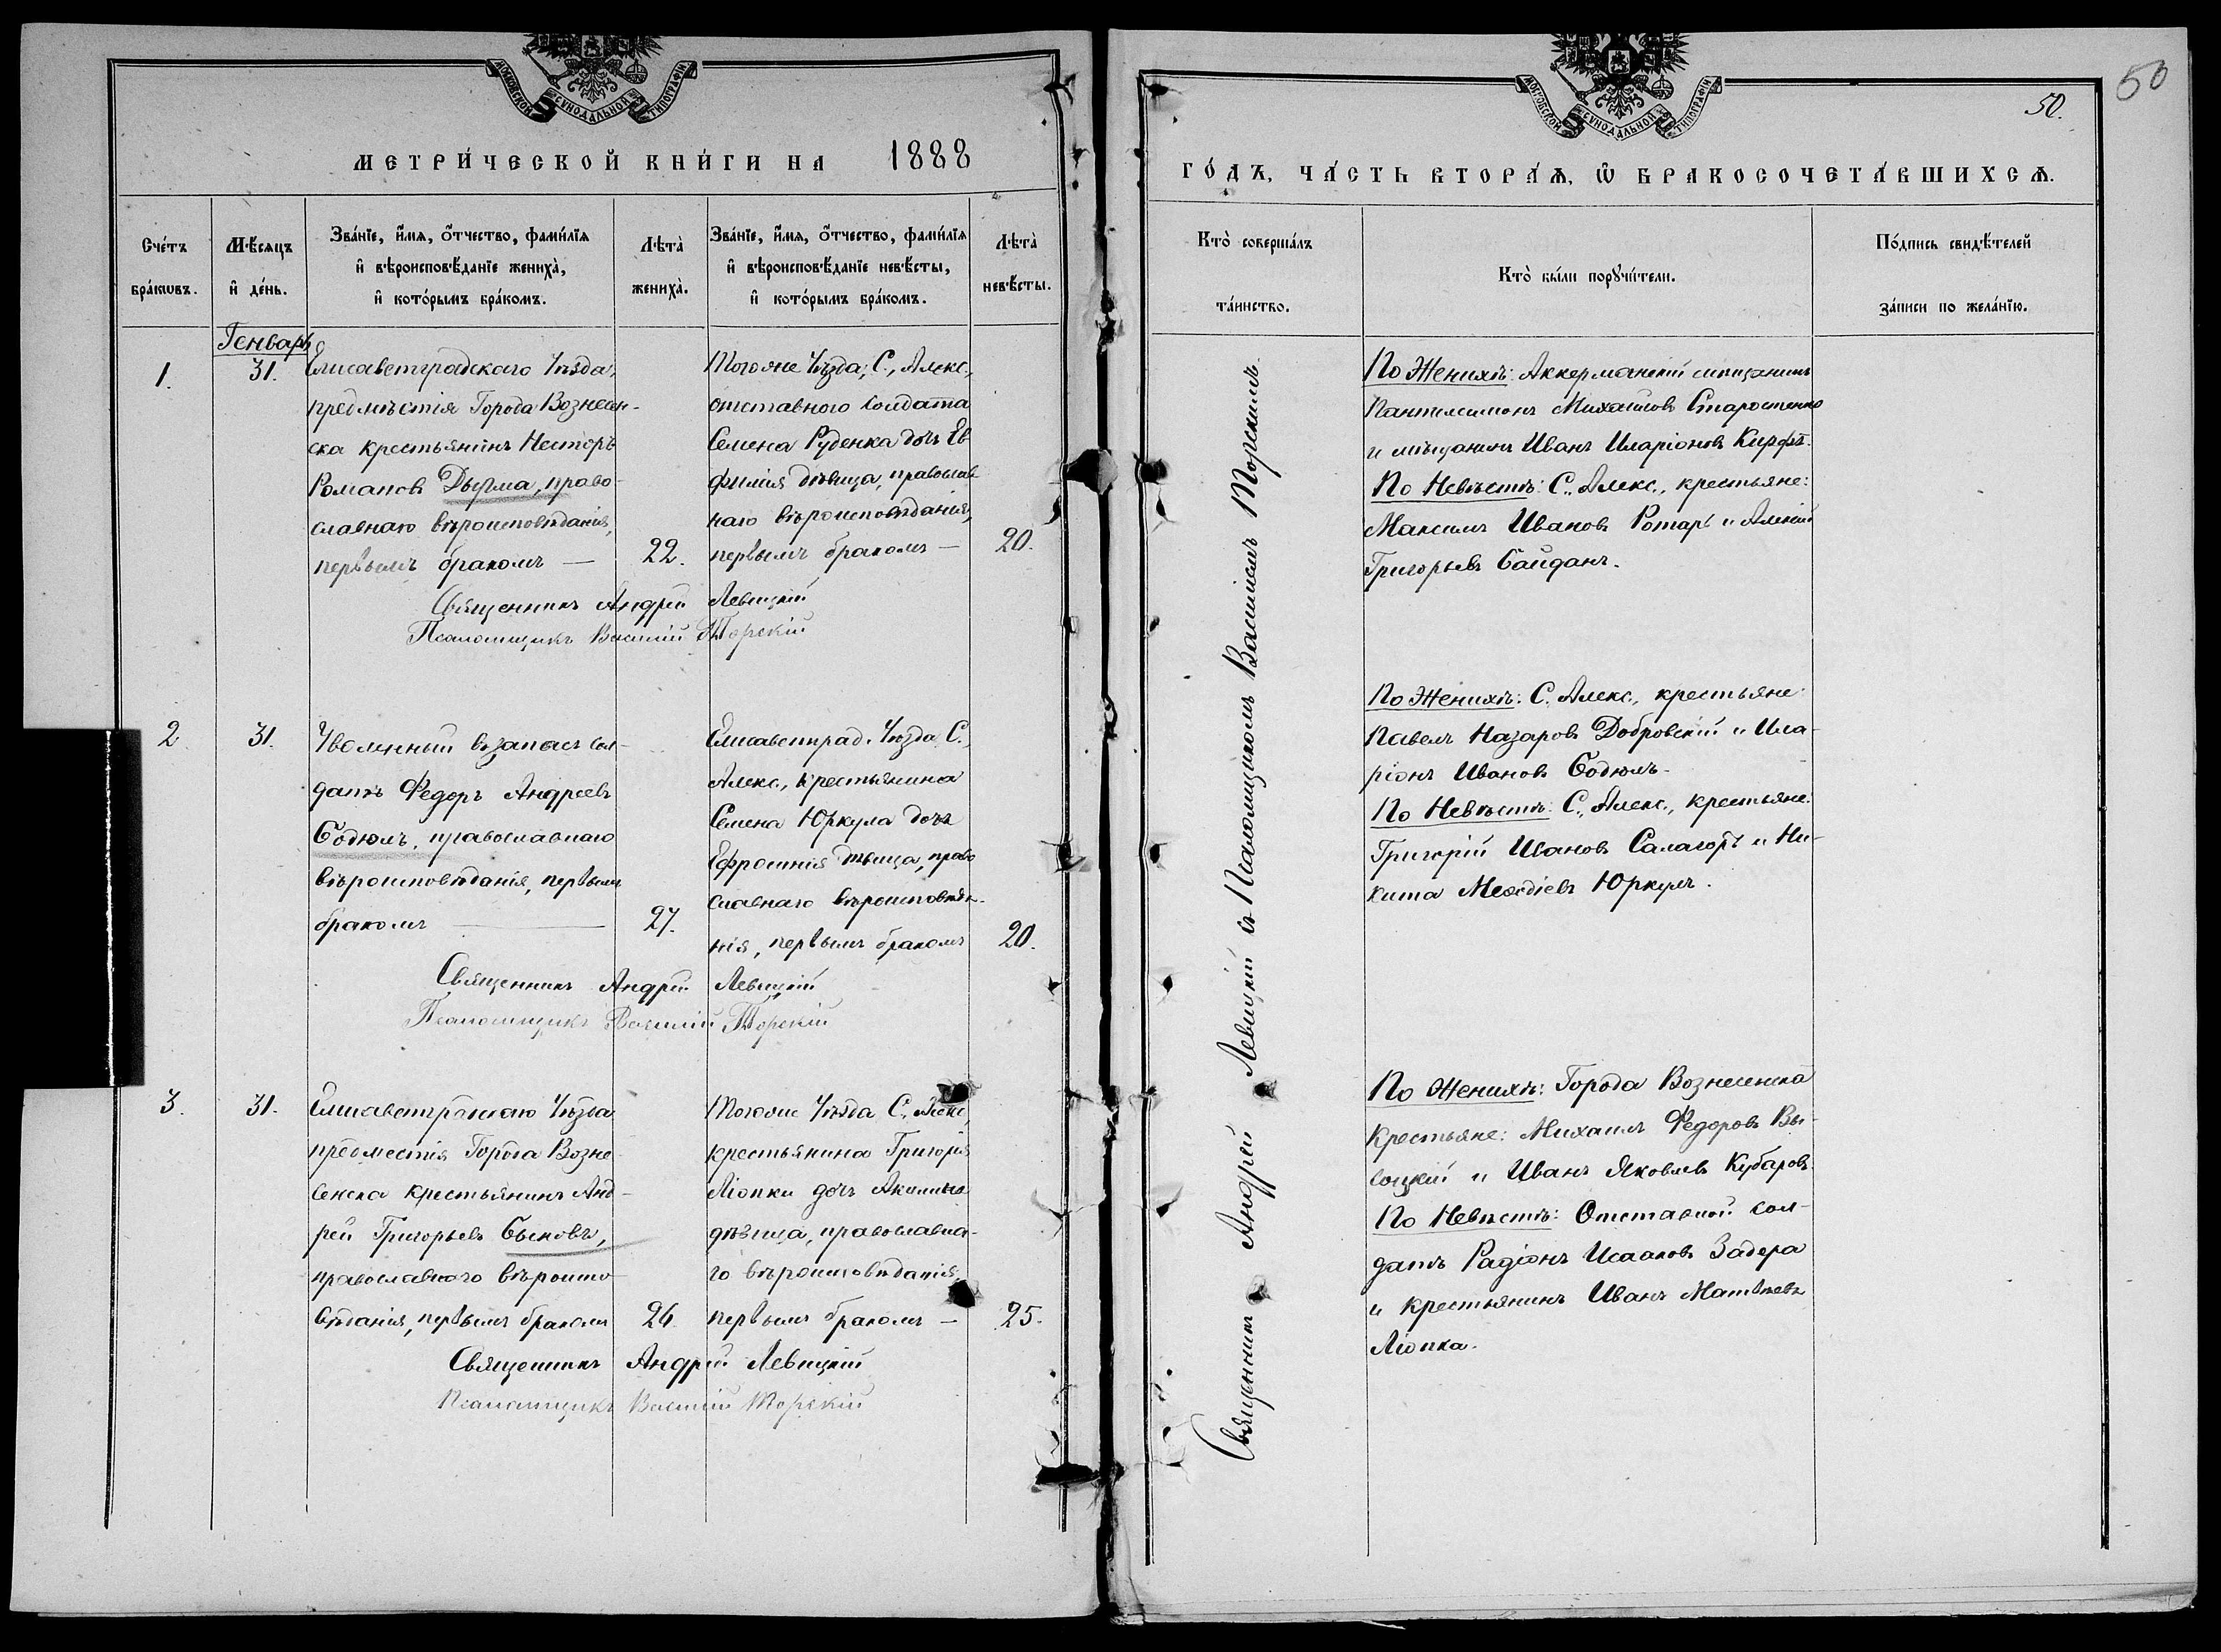 МОСКОВСКОЙ СѴНОДАЛЬНОЙ ТИПОГРАФІИ
МЕТРИ́ЧЕСКОЙ КНИ́ГИ НА 1888
Сче́тъ бра́кωвъ.
Мѣ́сяцъ и҆ де́нь.
Зва́нїе, и҆́мѧ, ѻ҆́тчество, фами́лїѧ
и҆ вѣроисповѣ́данїе жениха̀,
и҆ кото́рымъ бра́комъ.
Лѣта̀ жениха̀.
Зва́нїе, и҆́мѧ, ѻ҆́тчество, фами́лїѧ
и҆ вѣроисповѣ́данїе невѣ́сты,
и҆ кото́рымъ бра́комъ.
Лѣта̀ невѣ́сты.
Генварь
1.
31.
Елисаветградскаго Уѣзда,
предмѣстія Города Вознесен-
ска крестьянинъ Несторъ
Романовъ Дырма, право-
славнаго вѣроисповѣданія,
первымъ бракомъ —
22.
Тогоже Уѣзда, С., Алекс.,
отставного солдата
Семена Руденка дочь Ев
фимія дѣвица, православ
наго вѣроисповѣданія,
первымъ бракомъ —
20.
Священникъ Андрей Левицкій
Псаломщикъ Василій Торскій
2
31.
Уволенный въ запасъ сол-
датъ Федоръ Андреевъ
Бодюлъ, православнаго
вѣроисповѣданія, первымъ
бракомъ —
27.
Елисаветград. Уѣзда С.,
Алекс., крестьянина
Семена Юркула дочь
Ефросинія дѣвица, право
славнаго вѣроисповѣда-
нія, первымъ бракомъ
20.
Священникъ Андрей Левицкій
Псаломщикъ Василій Торскій
3.
31.
Елисаветградскаго Уѣзда
предместія Города Возне-
сенска крестьянинъ Анд-
рей Григорьевъ Быковъ,
православнаго вѣроиспо-
вѣданія, первымъ бракомъ
26
Тогоже Уѣзда С. Алекс,
крестьянина Григорія
Ліопки дочь Акилина
дѣвица, православна-
го вѣроисповѣданія,
первымъ бракомъ —
25.
Священникъ Андрей Левицкій
Псаломщикъ Василій Торскій
50
50.
МОСКОВСКОЙ СѴНОДАЛЬНОЙ ТИПОГРАФІИ
ГО́ДЪ, ЧА́СТЬ ВТОРА́Ѧ, Ѡ҆ БРАКОСОЧЕТА́ВШИХСѦ.
Кто̀ соверша́лъ
та́инство.
Кто̀ бы́ли порꙋчи́тели.
По́дпись свидѣ́телей
за́писи по жела́нїю.
Священникъ Андрей Левицкій съ Псаломщикомъ Василіемъ Торскимъ.
По Женихѣ: Аккерманскій мѣщанинъ
Пантилимонъ Михайловъ Старостенко
и мѣщанинъ Иванъ Иларіоновъ
По Невѣстѣ: С., Алекс., крестьяне:
Максимъ Ивановъ Ротарь и
Григорьевъ Байданъ.
По Женихѣ: С. Алекс., крестьяне:
Павелъ Назаровъ Добровскій и Ила-
ріонъ Ивановъ Бодюлъ.
По Невѣстѣ: С., Алекс., крестьяне:
Григорій Ивановъ Салагоръ и Ни-
кита Мефодіевъ Юркулъ.
По Женихѣ: Города Вознесенска
Крестьяне: Михаилъ Федоровъ Вы-
соцкій и Иванъ Яковлевъ Кубаровъ.
По Невѣстѣ: Отставной сол-
датъ Радіонъ Исааковъ Задера
и крестьянинъ Иванъ Матвѣевъ
Ліопка.